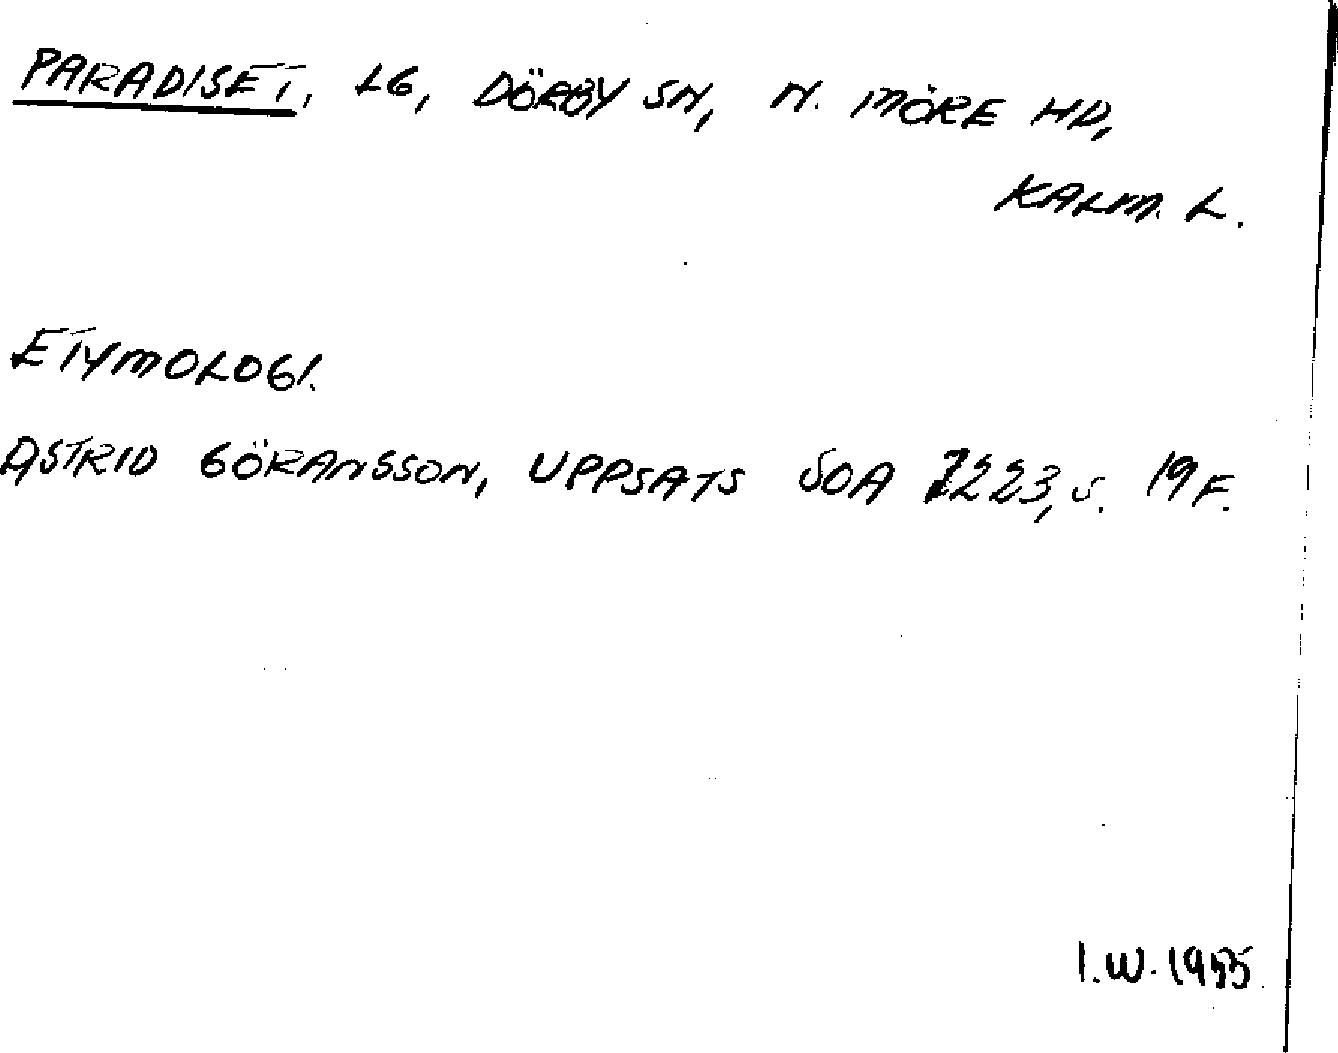 PARADISET, LG, DÖRBY SN, N. MÖRE HD,
KALM. L.
ETYMOLOGI.
ASTRID GÖRANSSON, UPPSATS SOA 7223, S. 19 F.
I.W. 1955